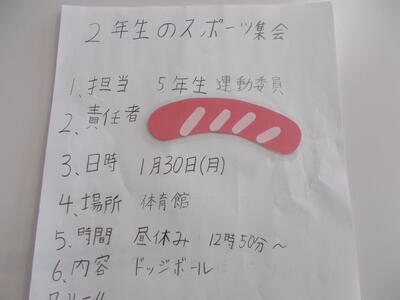 2年生のスポーツ集会
1、担当 5年生 運動委員
2、責任者
3、日時 1月30日(月)
4、場所 体育館
5、時間 昼休み 12時50分～
6、内容 ドッジボール